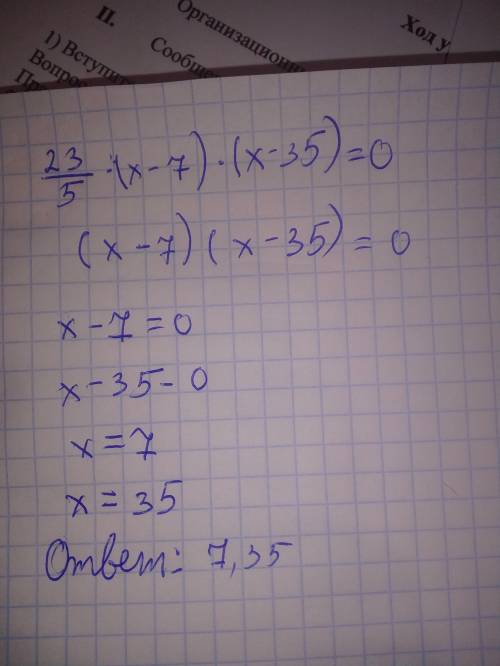 II.
Организационн
Ход у
1) Вступит
Сообще
Вопро
Пр
23/5 · (x-7) · (x-35) = 0
(x-7)(x-35) = 0
x-7=0
x-35-0
x=7
x=35
Ответ: 7,35